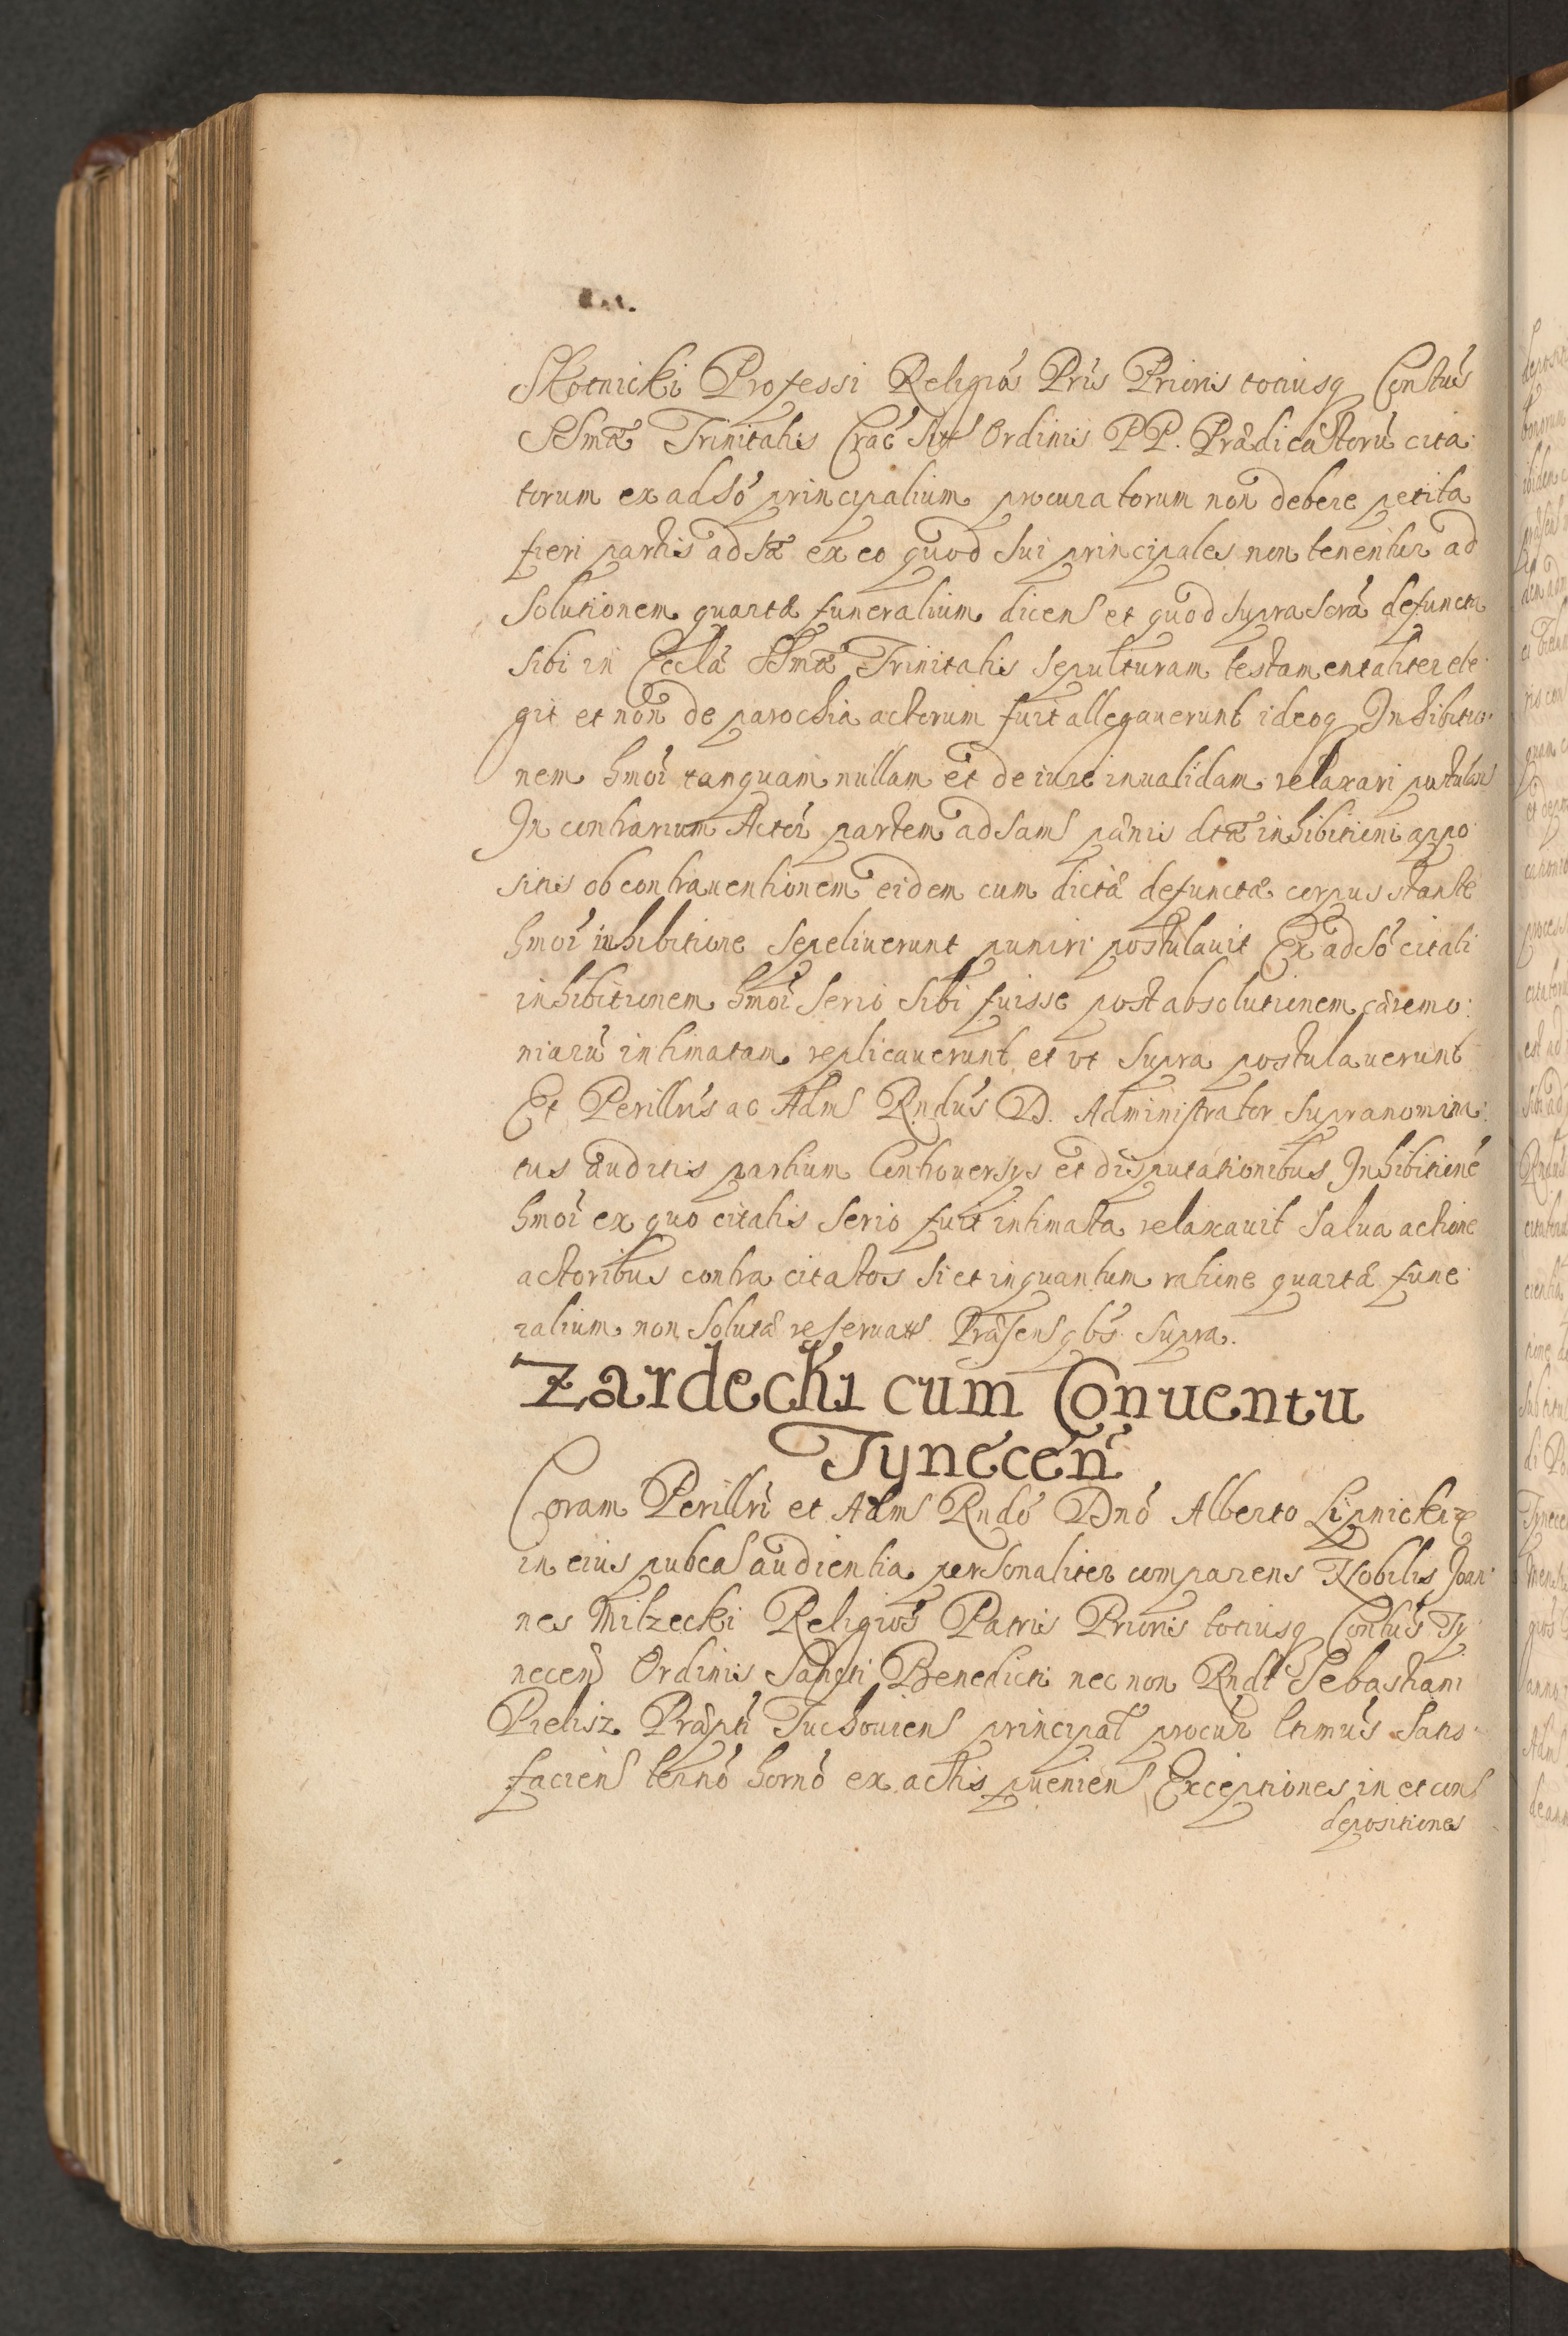 Skotnicki Professi Religiós Pris Prioris totiusq Contus
SSmæ Trinitatis Crac Ordinis PP. Prædicatorũ cita:
torum ex adsó principalium procuratorum non debere petita
fieri partis adsæ ex eo quod sui principales non tenentur ad
solutionem quartæ funeralium dicens et quod suprascrá defuncta
sibi in Ecclá SSmæ Trinitatis sepulturam testamentaliter ele:
git et non de parochia actorum fuit allegauerunt ideoq Inhibitio:
nem hmoi tanquam nullam et de iure inualidam relaxari postulans
In contrarium Actor partem adsam pænis dtæ inhibitioni appo:
sitis ob contrauentionem eidem cum dictæ defunctæ corpus stante
hmoi inhibitione sepeliuerunt puniri postulauit Ex adsó citati
inhibitionem hmoi serio sibi fuisse post absolutionem cæremo:
niarũ intimatam replicauerunt et vt supra postulauerunt
Et Perillris ac Adm Rndus D. Administrator supranomina:
tus auditis partium Controuersys et disputationibus Inhibitione
hmoi ex quo citatis serio fuit intimata relaxauit salua actione
actoribus contra citatos si et inquantum ratione quartæ fune:
ralium non solutæ reseruata Præsen qbs supra.
Zardecki cum Conuentu
Tynecen
Coram Perillri et Adm Rndó Dnó Alberto Lipnicki
in eius pubca audientia personaliter comparens Nobilis Joan:
nes Milzecki Religios Patris Prioris totiusq Contus Ty:
necen Ordinis Sancti Benedicti nec non Rndi Sebastiani
Pielisz Præpti Tuchouien principal procur ltimus satis:
facien termó hornó ex actis pueniен Exceptiones in et con
depositiones